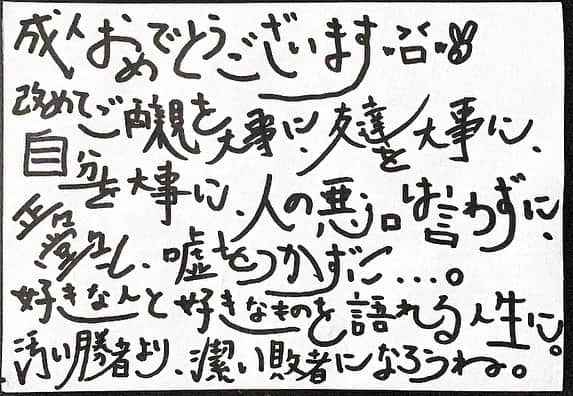 成人おめでとうございます
改めてご両親を大事に、友達を大事に、
自分を大事に、人の悪口は言わずに、
正々堂々とし、嘘をつかずに…。
好きな人と好きなものを語れる人生に。
汚い勝者より、潔い敗者になろうね。